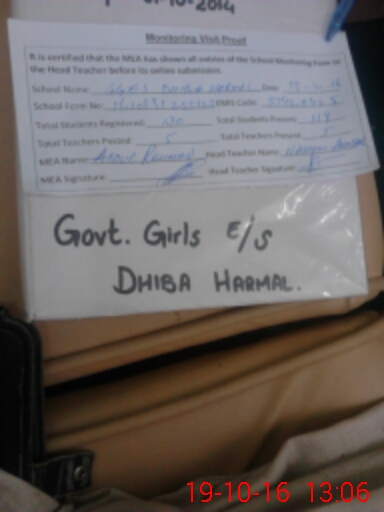 -10-2014
Monitoring Visit Proof
It is certified that the MEA has shown all entries of the School Monitoring Form to
the Head Teacher before its online submission.
School Name: GGES DHIBA HARMAL Date:
School Form No: EMIS Code:
Total Students Registered: 130 Total Students Present: 119
Total Teachers Posted: 5 Total Teachers Present: 5
MEA Name: Head Teacher Name:
MEA Signature: Head Teacher Signature:
Govt. Girls E/S
DHIBA HARMAL.
19-10-16 13:06